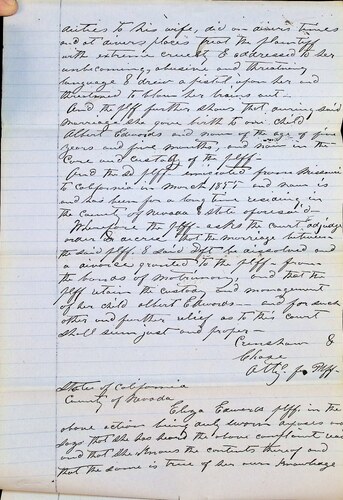 duties to his wife, did on divers times
and at divers places treat the plaintiff
with extreme cruelty & addressed to her
unbecoming, abusive and threatening
language & drew a pistol upon her and
threatened to blow her brains out —
And the plff further shows that during said
marriage she gave birth to one child
Albert Edwards and now of the age of five
years and five months, and now in the
Care and custody of the plff —
And the sd plff emigrated from Missouri
to California in March 1855 and now is
and has been for a long time residing in
the County of Nevada & State aforesaid,
Wherefore the plff - asks the court, adjudge
order & decree that the marriage between
the said plff. & said Deft be dissolved and
a divorce granted to the plff - from
the bonds of matrimony and that the
plff retain the custody and management
of her child Albert Edwards — and for such
other and further relief as to this court
shall seem just and proper —
Crenshaw &
Chase
Attys. for Plff -
State of California
County of Nevada
Eliza Edwards plff. in the
above action being duly sworn deposes and
says that she has heard the above complaint read
and that she knows the contents thereof and
that the same is true of her own knowledge